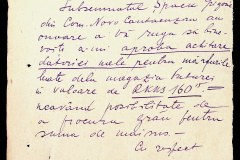 Subsemnatul Spacu Grigore
din Com. Novo Cantacuzeno am
onoare a vă ruga să bine-
voiți a-mi aproba achitarea
datoriei mele pentru mărfurile
luate dela magazia
în valoare de RKKS 160
neavând posibilitate de
a procura grâu pentru
suma de mai sus
Cu respect